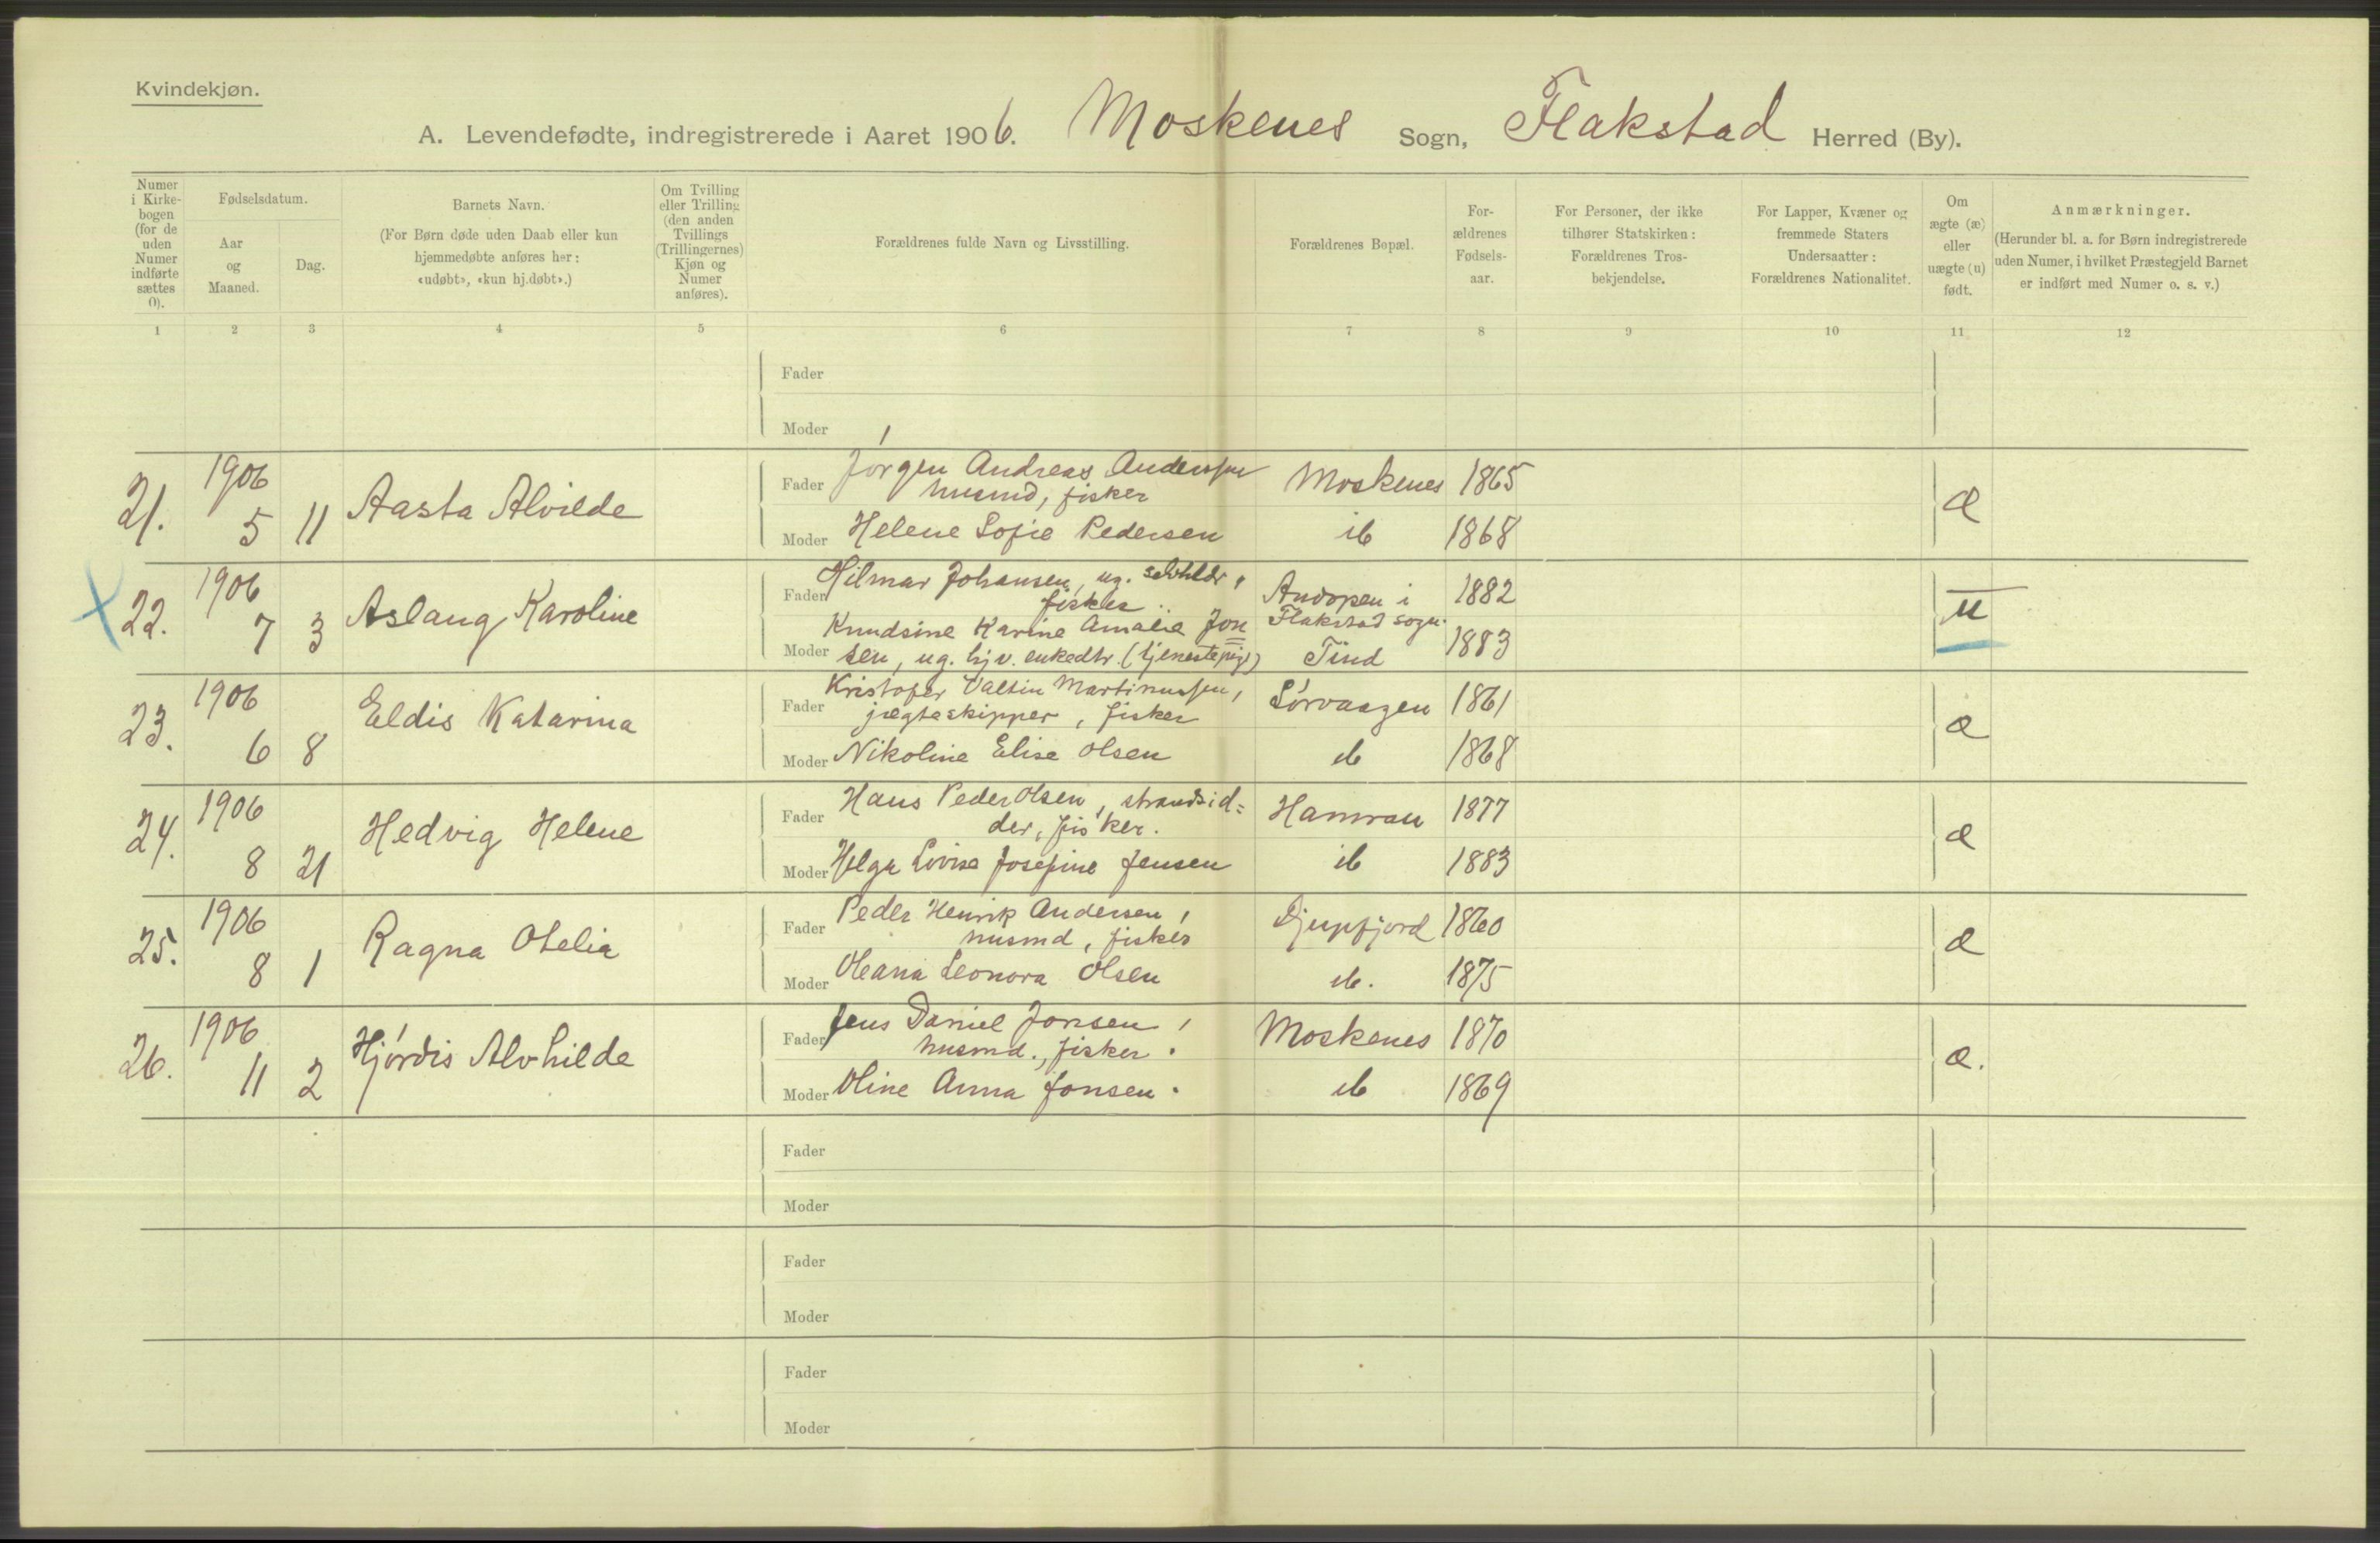 Kvindekjøn.
A. Levendefødte, indregistrerede i Aaret 1906. Moskenes Sogn, Flakstad Herred (By).
Numer i Kirke-bogen (for de uden Numer indførte sættes 0).
Fødselsdatum.
Aar og Maaned.
Dag.
Barnets Navn.
(For Børn døde uden Daab eller kun hjemmedøbte anføres her: «udøbt», «kun hj.døbt».)
Om Tvilling eller Trilling (den anden Tvillings (Trillingernes) Kjøn og Numer anføres).
Forældrenes fulde Navn og Livsstilling.
Forældrenes Bopæl.
For-ældrenes Fødsels-aar.
For Personer, der ikke tilhører Statskirken: Forældrenes Tros-bekjendelse.
For Lapper, Kvæner og fremmede Staters Undersaatter: Forældrenes Nationalitet.
Om ægte (æ) eller uægte (u) født.
Anmærkninger.
(Herunder bl. a. for Børn indregistrerede uden Numer, i hvilket Præstegjeld Barnet er indført med Numer o. s. v.)
1 2 3 4 5 6 7 8 9 10 11 12
Fader
Moder
21. 1906 5 11 Aasta Alvilde
Fader Jørgen Andreas Anderssen Moskenes 1865 æ
husmd, fisker
Moder Helene Sofie Pedersen ib 1868
22. 1906 7 3 Aslaug Karoline
Fader Hilmar Johansen, ug. selvhldr, Andopen i 1882 u
fisker Flakstad sogn.
Moder Knudsine Karine Amalie Jon
sen, ug. hjv. enkedtr. (tjenestepige) Tind 1883
23. 1906 6 8 Eldis Katarina
Fader Kristofer Valtin Martinussen, Sørvaagen 1861 æ
jægteskipper, fisker
Moder Nikoline Elise Olsen ib 1868
24. 1906 8 21 Hedvig Helene
Fader Hans Peder Olsen, strandsid= Hamran 1877 æ
der, fisker.
Moder Helga Lovise Josefine Jensen ib 1883
25. 1906 8 1 Ragna Otelia
Fader Peder Henrik Andersen, Djupfjord 1860 æ
husmd, fisker
Moder Oleana Leonora Olsen ib. 1875
26. 1906 11 2 Hjørdis Alvhilde
Fader Jens Daniel Jonsen, Moskenes 1870 æ.
husmd., fisker.
Moder Oline Anna Jonsen. ib 1869
Fader
Moder
Fader
Moder
Fader
Moder